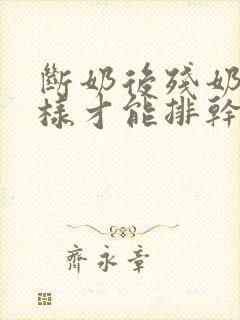 斷奶後殘奶
樣才能排幹
齊永章